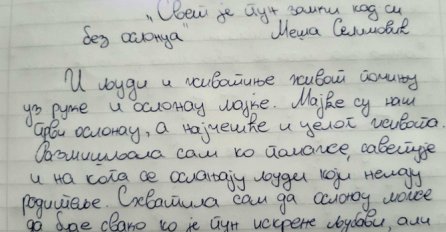 „Свет је пун замки кад си
без ослонца" Меша Селимовић
И људи и животиње живот почињу
уз руке и ослонац мајке. Мајке су наш
први ослонац, а најчешће и целог живота.
Размишљала сам ко помаже, саветује
и на кога се ослањају људи који немају
родитеље. Схватила сам да ослонац може
да буде свако ко је пун искрене љубави, али